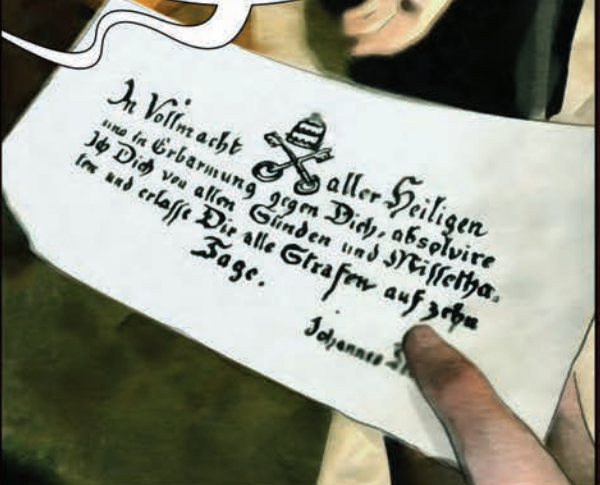 In Vollmacht aller Heiligen
und in Erbarmung gegen Dich, absolvire
Ich Dich von allen Sünden und Missetha-
ten und erlasse Dir alle Strafen auf zehn
Tage.
Johannes